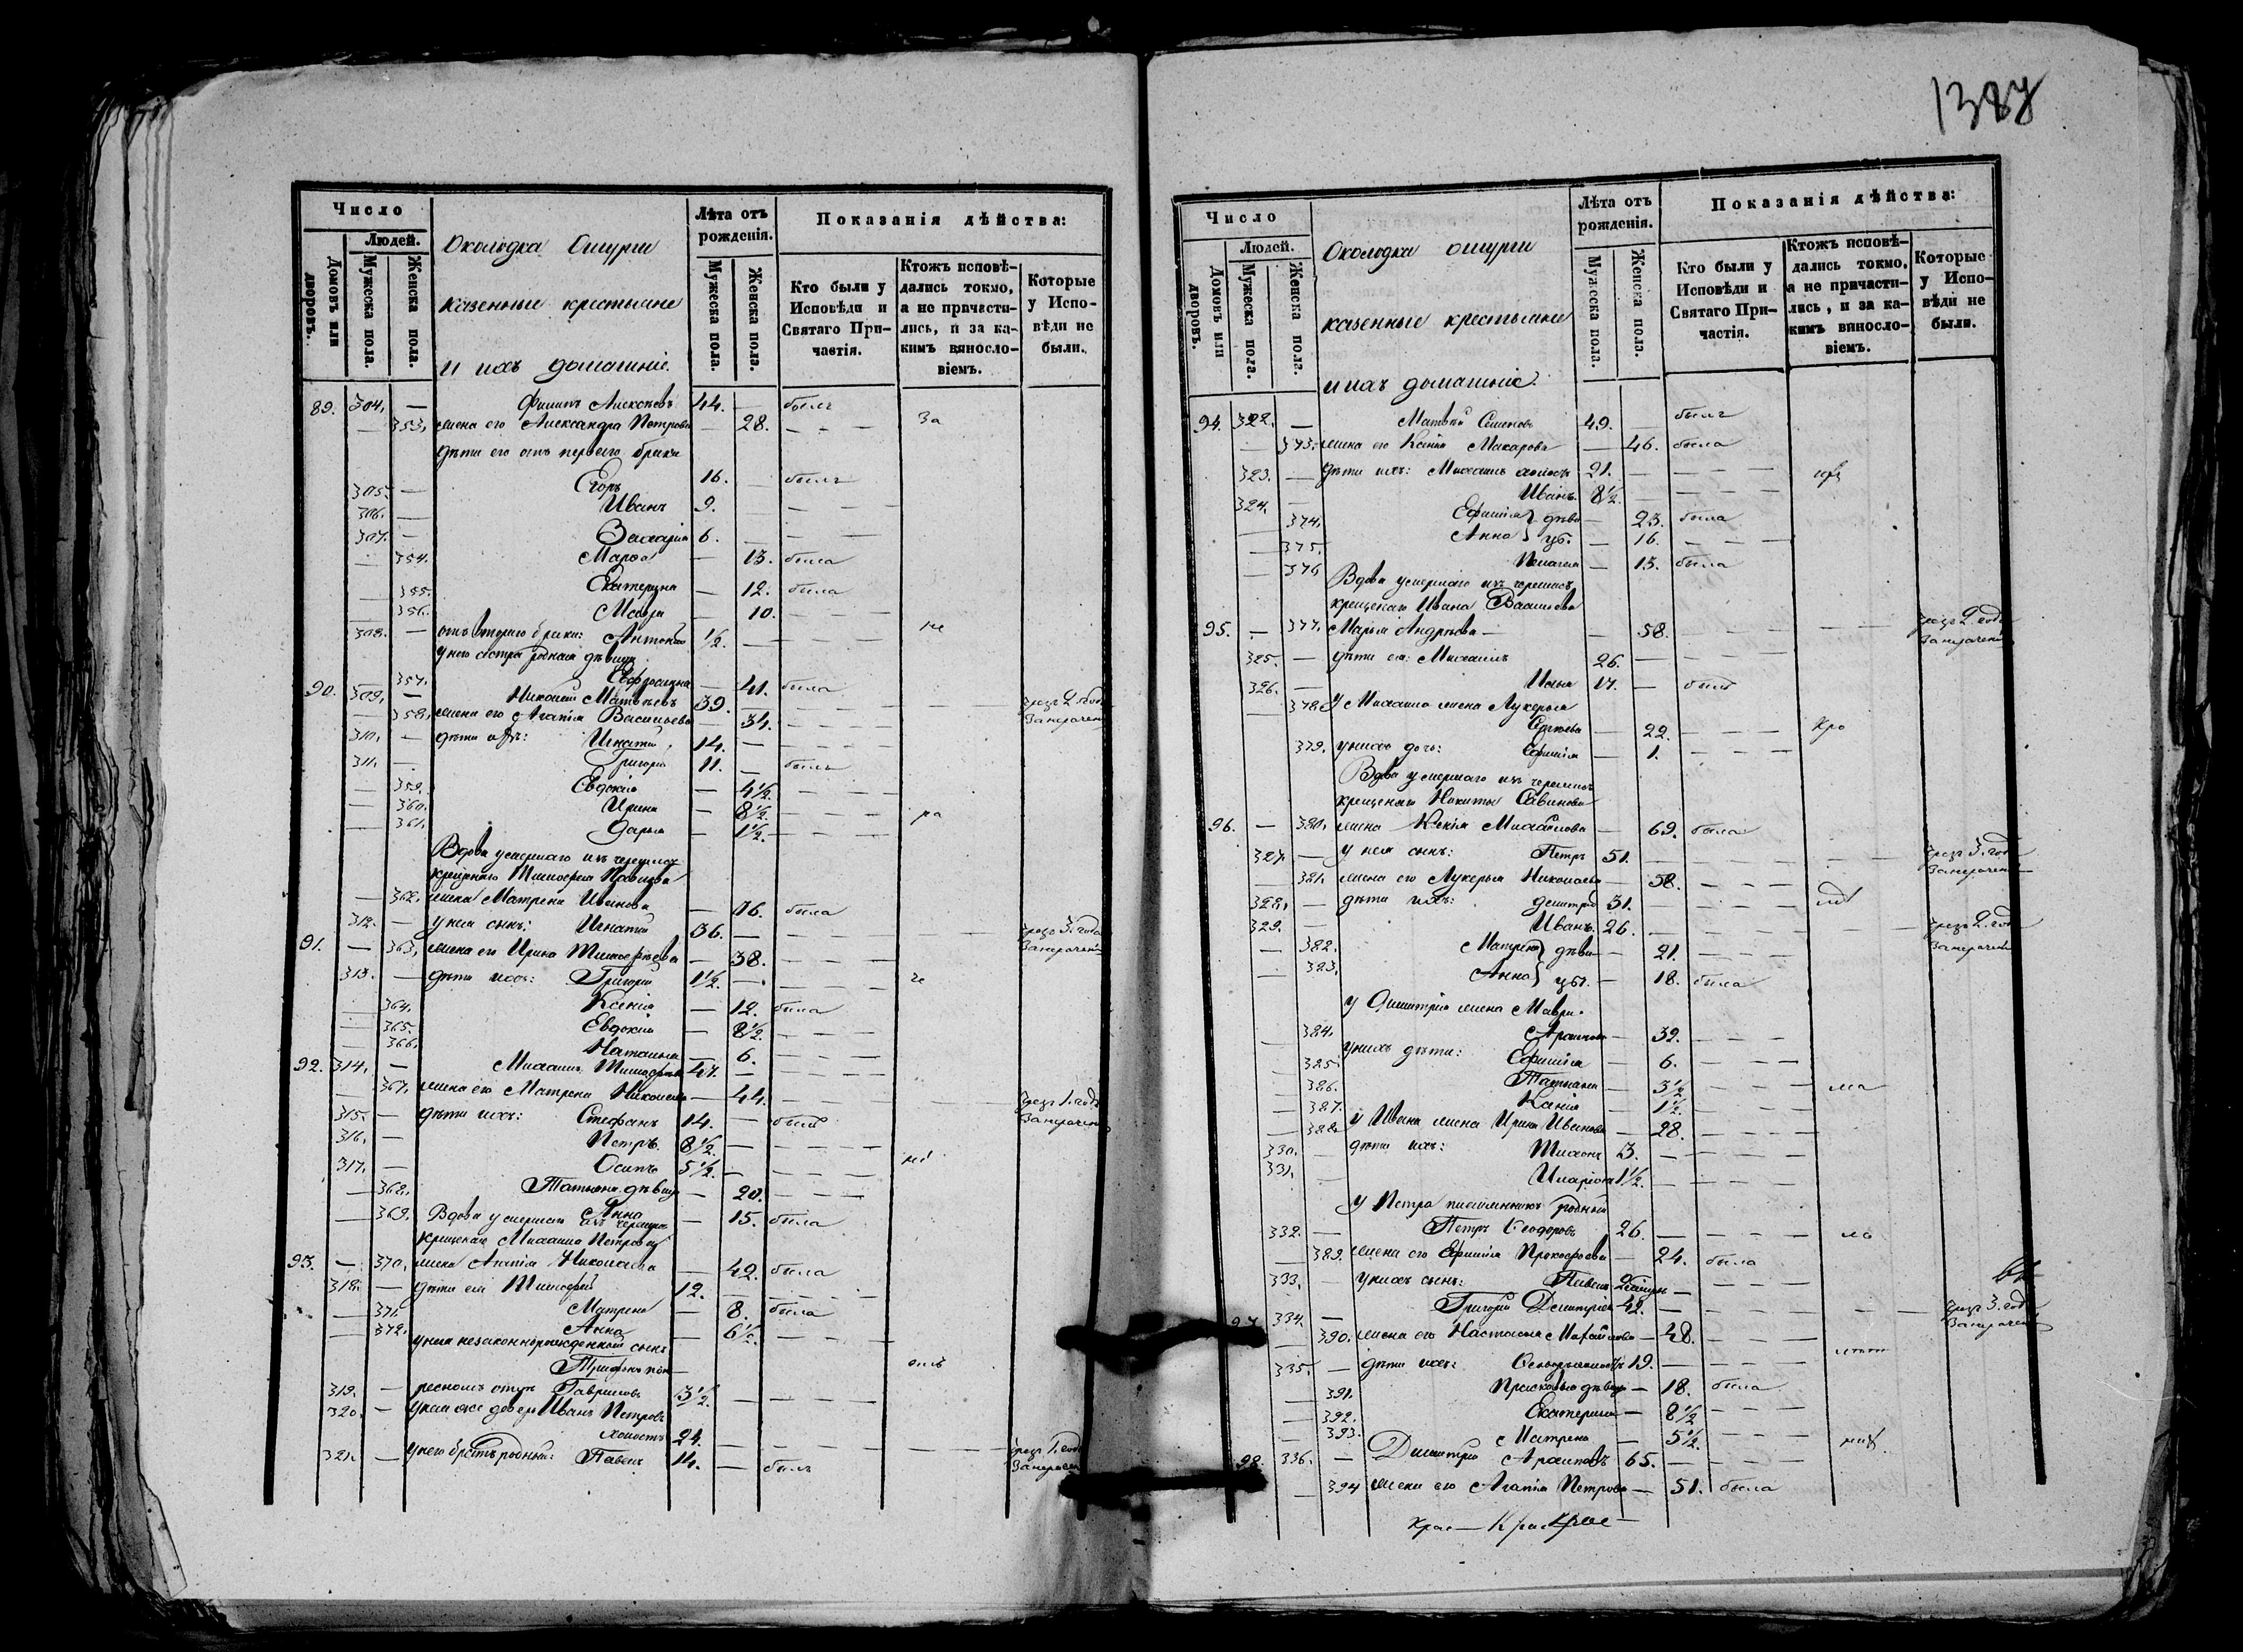 1387
Число
Людей.
Домовъ или дворовъ.
Мужеска пола.
Женска пола.
Околодка Ошурги
казенные крестьяне
и ихъ домашніе.
Лѣта отъ рожденія.
Мужеска пола.
Женска пола.
Показанія дѣйства:
Кто были у Исповѣди и Святаго Причастія.
Ктожъ исповѣдались токмо, а не причастились, и за какимъ винословіемъ.
Которые у Исповѣди не были.
89. 304. — Филипъ Алексѣевъ 44. — былъ
— 353. жена его Александра Петрова — 28. — — — За
дѣти его отъ перваго брака
305. — Егоръ 16. — былъ
306. — Иванъ 9. — — —
307. — Захарія 6. — — —
— 354. Марѳа — 13. была
— 355. Екатерина — 12. была
— 356. Мавра — 10. — — —
308. — отъ втораго брака: Антоній 1/2. — — — не
у него сестра родная дѣвица
357. Евфросинья — 41. была
90. 309. — Николай Матвѣевъ 39. — — — — чрезъ 2. года
— 358. жена его Агапія Васильева — 34.
310. — дѣти ихъ: Игнатій 14. — — — —
311. — Григорій 11. — былъ
— 359. Евдокія — 4 1/2. — — —
— 360. Ирина — 8 1/2. — — — ра
— 361. Дарья — 1 1/2. — — —
Вдова умершаго изъ черемисъ
крещенаго Тимофея
— 362. жена Матрена Иванова — была
312. — у нея сынъ: Игнатій 36. — — — чрезъ 3. года
91. — 363. жена его Ирина Тимофѣева — 38.
313. — дѣти ихъ: Григорій 1 1/2. — — — — че
— 364. Ксенія — 12. была
— 365. Евдокія — 8 1/2. — — —
— 366. Наталья — 6. — — —
92. 314. — Михаилъ Тимофѣевъ 47. —
— 367. жена его Матрена Николаева — 44. — — — чрезъ 1. годъ
315. — дѣти ихъ: Стефанъ 14. — былъ
316. — Петръ. 8 1/2. — — —
317. — Осипъ 5 1/2. — — —
— 368. Татьяна дѣвица — 20. — — —
— 369. Анна — 15. была
Вдова умершаго изъ черемисъ
крещенаго Михаила Петрова
93. — 370. жена Агапія Николаева — 42. была
318. — дѣти ея Тимофей 12. — — — —
— 371. Матрена — 8. была
— 372. Анна — 6 1/2. — — —
у нея незаконнорожденный сынъ
Трифонъ по
319. — крестномъ отцѣ Гавриловъ 3 1/2. — — —
320. — у нея же деверь Иванъ Петровъ
холостъ 24. — — — — чрезъ 1. годъ
321. — у него братъ родный: Павелъ 14. — былъ
Число
Людей.
Домовъ или дворовъ.
Мужеска пола.
Женска пола.
Околодка ошурги
казенные крестьяне
и ихъ домашніе.
Лѣта отъ рожденія.
Мужеска пола.
Женска пола.
Показанія дѣйства:
Кто были у Исповѣди и Святаго Причастія.
Ктожъ исповѣдались токмо, а не причастились, и за какимъ винословіемъ.
Которые у Исповѣди не были.
94. 322. — Матвѣй Семеновъ 49. былъ
— 373. жена его Ксенія Макарова — 46. была
323. — дѣти ихъ: Михаилъ холостъ 21. — — — —
324. Иванъ. 8 1/2. — — — —
374. Ефимія } дѣви — 23. была
— 375. Анна } цы. — 16. — — —
— 376 Пелагея — 13. была
Вдова умершаго изъ черемисъ
крещенаго Ивана Васильева
95. — 377. Марья Андреева — — 58. — — — чрезъ 2. года
325. — дѣти ея: Михаилъ 26. — — — —
326. — Илья 17. — былъ
— 378. У Михаила жена Лукерья
Сергѣева — 22. — — — кра
379. у нихъ дочь: Ефимія — 1. — — —
Вдова умершаго изъ черемисъ
крещенаго Никиты Савинова
96. — 380. жена Ксенія Михайлова — 69. была
327. — у нея сынъ: Петръ 51. — — — — чрезъ 3. года
— 381. жена его Лукерья Николаева — 58. — — —
328. — дѣти ихъ: Димитрій 31. — — — —
329. Иванъ. 26. — — — — чрезъ 2. года
— 382. Матрена } дѣви — 21. —
— 383. Анна } цы. — 18. была
У Димитрія жена Мавра
— 384. Архипова — 32. — — —
у нихъ дѣти:
— 385. Ефимія — 6. — — —
— 386. Татьяна — 3 1/2 — — — ма
— 387. Ксенія — 1 1/2. — — —
— 388. У Ивана жена Ирина Иванова — 28. — — —
330. — дѣти ихъ: Тихонъ 3. — — — —
331. Иларіонъ 1 1/2. — — — —
У Петра племянникъ родный
332. — Петръ Ѳеодоровъ 26. — — — —
— 389. жена его Ефимія Прокофьева — 24. была
333. — у нихъ сынъ: Павелъ — — —
97. 334. — Григорій Димитріевъ 42. — — — — чрезъ 3. года
— 390. жена его Настасья Михайлова — 48. —
335. — дѣти ихъ: 19. — — — —
— 391. Прасковья дѣвица — 18. была
— 392. Екатерина — 8 1/2 — — —
— 393. Матрена — 5 1/2. — — —
98. 336. — Димитрій Архиповъ 65. — — — —
— 394 жена его Агапія Петрова — 51. была